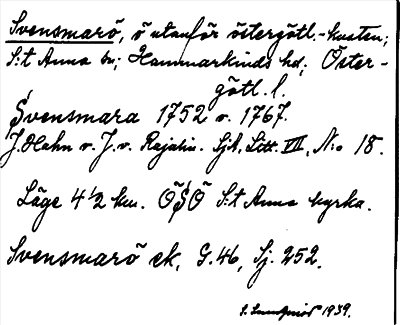 Svensmarö, ö utanför östergötl.-kusten;
S:t Anna sn; Hammarkinds hd; Öster-
götl. l.
Svensmara 1752 o. 1767.
J. Hahn o. J. v. Rajalin. SjA, Litt. VII, N:o 18.
Läge 4½ km. ÖSÖ S:t Anna kyrka.
Svensmarö ek, G.46, Sj. 252.
S. 1939.